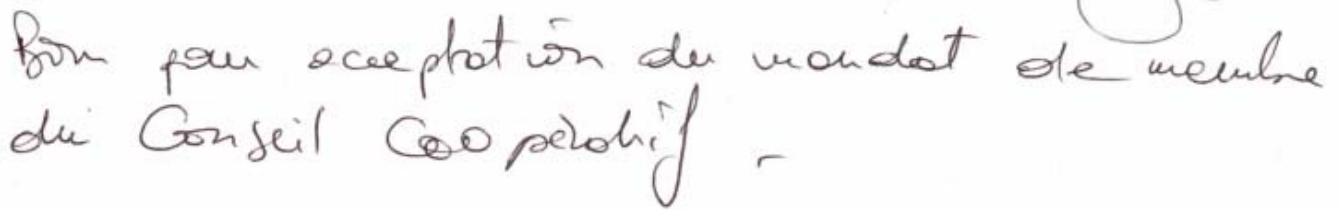 Bon pour acceptation du mandat de membre
du Conseil Coopératif -